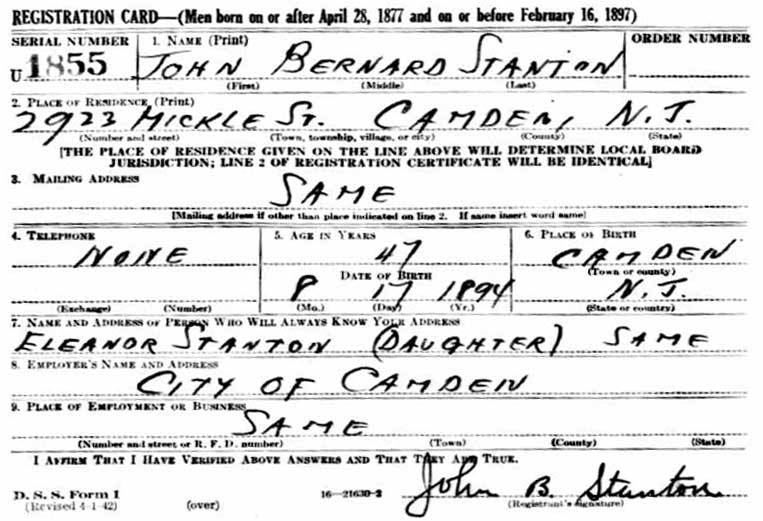 REGISTRATION CARD—(Men born on or after April 28, 1877 and on or before February 16, 1897)
SERIAL NUMBER 1. NAME (Print) ORDER NUMBER
U 1855 JOHN BERNARD STANTON
(First) (Middle) (Last)
2. PLACE OF RESIDENCE (Print)
2923 MICKLE ST. CAMDEN, N.J.
(Number and street) (Town, township, village, or city) (County) (State)
[THE PLACE OF RESIDENCE GIVEN ON THE LINE ABOVE WILL DETERMINE LOCAL BOARD
JURISDICTION; LINE 2 OF REGISTRATION CERTIFICATE WILL BE IDENTICAL]
3. MAILING ADDRESS
SAME
[Mailing address if other than place indicated on line 2. If same insert word same]
4. TELEPHONE 5. AGE IN YEARS 6. PLACE OF BIRTH
NONE 47 CAMDEN
DATE OF BIRTH (Town or county)
8 17 1894 N.J.
(Exchange) (Number) (Mo.) (Day) (Yr.) (State or country)
7. NAME AND ADDRESS OF PERSON WHO WILL ALWAYS KNOW YOUR ADDRESS
ELEANOR STANTON (DAUGHTER) SAME
8. EMPLOYER'S NAME AND ADDRESS
CITY OF CAMDEN
9. PLACE OF EMPLOYMENT OR BUSINESS
SAME
(Number and street or R. F. D. number) (Town) (County) (State)
I AFFIRM THAT I HAVE VERIFIED ABOVE ANSWERS AND THAT THEY ARE TRUE.
John B. Stanton
D. S. S. Form 1 16—21630-2 (Registrant's signature)
(Revised 4-1-42) (over)